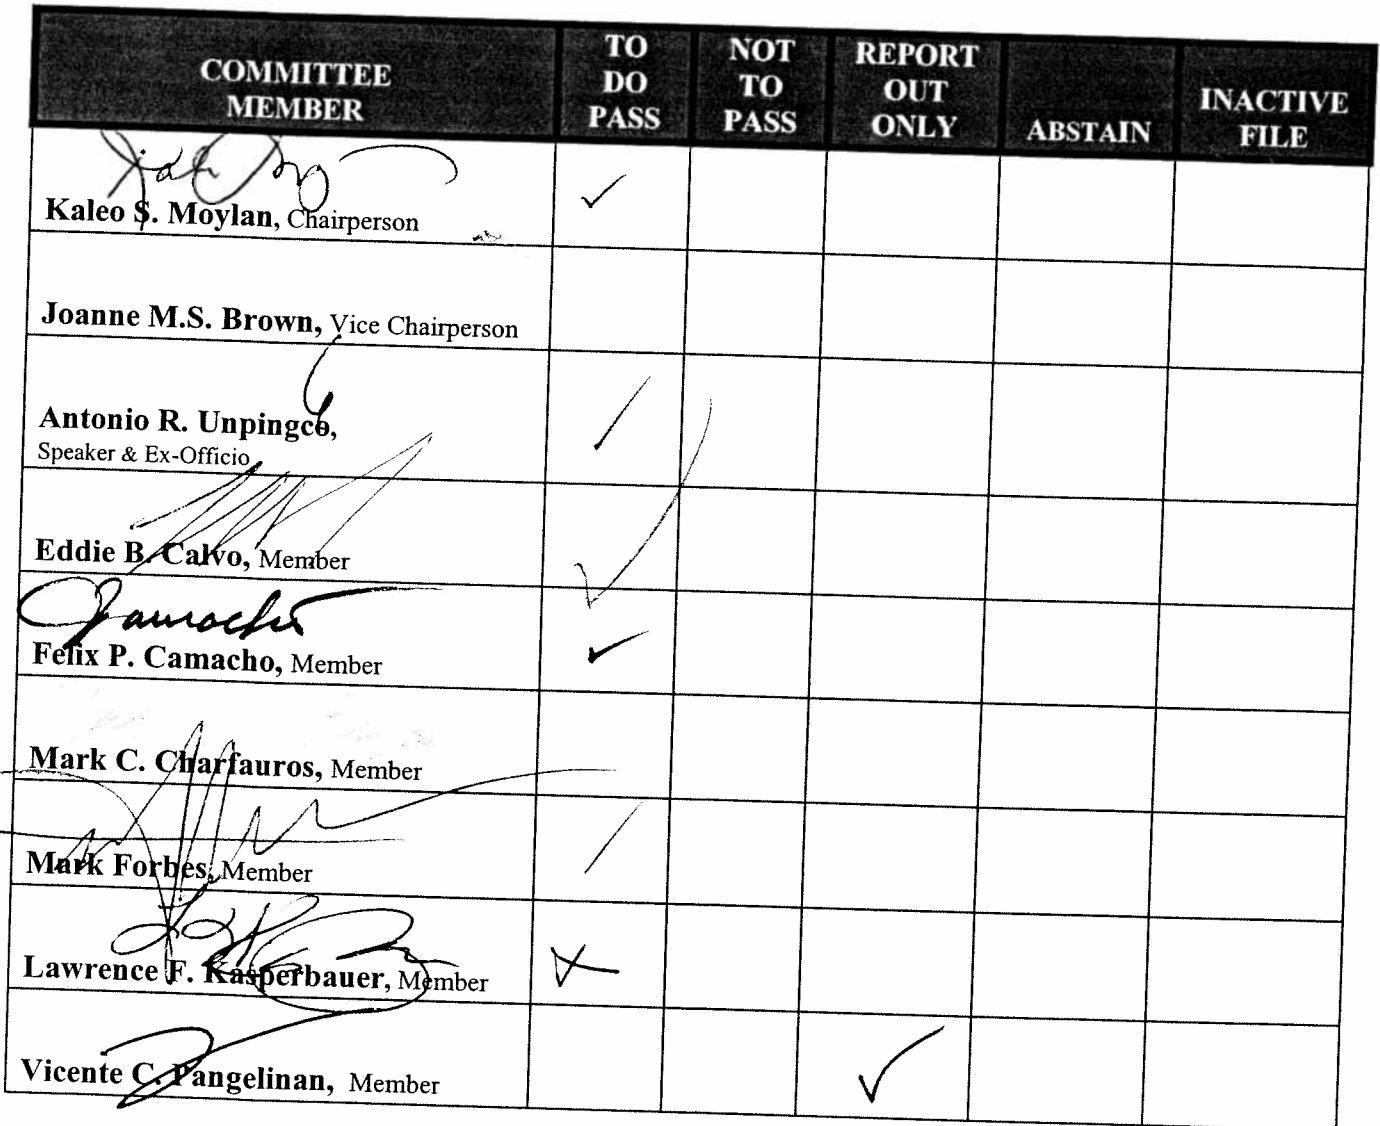 COMMITTEE MEMBER
TO DO PASS
NOT TO PASS
REPORT OUT ONLY
ABSTAIN
INACTIVE FILE
Kaleo S. Moylan, Chairperson
✓
Joanne M.S. Brown, Vice Chairperson
Antonio R. Unpingco,
Speaker & Ex-Officio
Eddie B. Calvo, Member
✓
Camacho
Felix P. Camacho, Member
✓
Mark C. Charfauros, Member
Mark Forbes, Member
Lawrence F. Kasperbauer, Member
Vicente C. Pangelinan, Member
✓